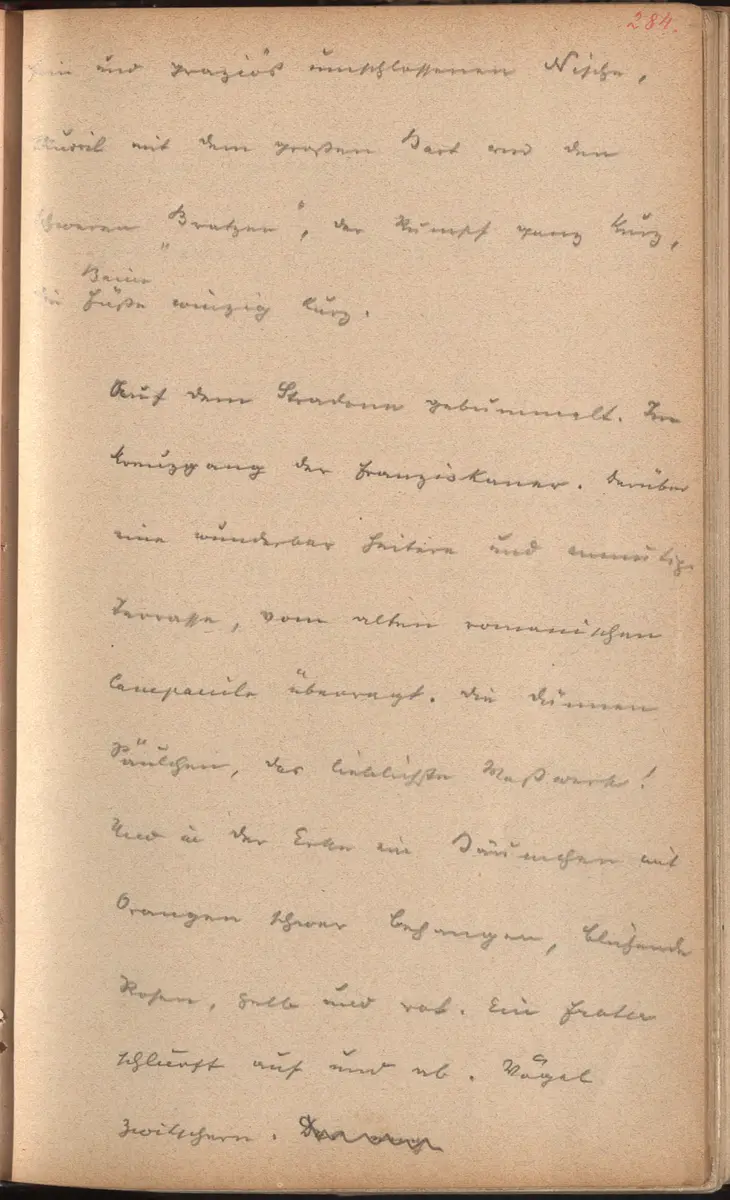 284.
fein und graziös umschlossenen Nische,
skurril mit dem großen Bart und den
schweren „Bratzen“, der Rumpf ganz kurz,
Beine
die Füße winzig kurz.
Auf dem Stradone gebummelt. Im
Kreuzgang der Franziskaner. Darüber
eine wunderbar heitere und anmutige
Terrasse, vom alten romanischen
Campanile überragt. Die dünnen
Säulchen, das lieblichste Maßwerk!
Und in der Ecke ein Bäumchen mit
Orangen schwer behangen, blühende
Rosen, gelb und rot. Ein Frater
schlurft auf und ab. Vögel
zwitschern.